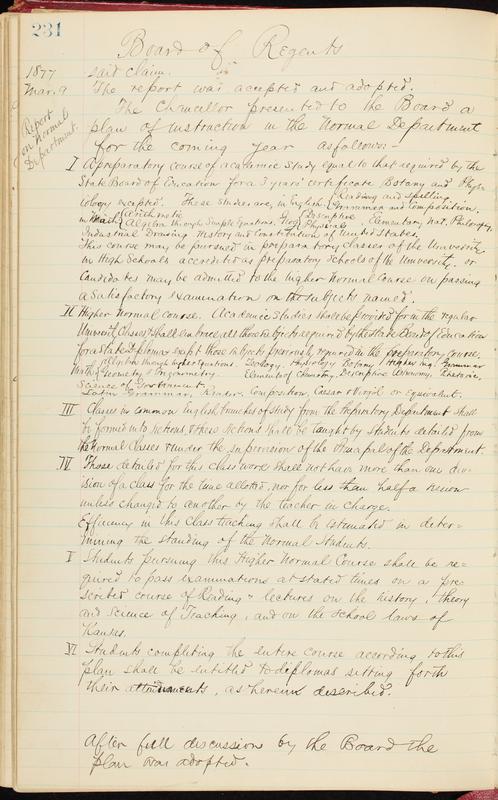 231
Board of Regents
1877 said claim.
Mar. 9 The report was accepted and adopted.
Report on Normal Department.
The Chancellor presented to the Board a
plan of instruction in the Normal Department
for the coming year as follows:-
I A preparatory course of academic study equal to that required by the
State Board of Education for a 3 years' certificate Botany and Phys-
iology excepted. These studies are, in English, Reading and Spelling
Grammar and Composition,
in Math Arithmetic
Algebra through Simple Equations. Geog Descriptive
Physical Elementary Nat. Philosophy,
Industrial Drawing History and Constitution of United States.
This course may be pursued in preparatory classes of the University
in High Schools accredited as preparatory Schools of the University. or
Candidates may be admitted to the higher Normal Course on passing
a satisfactory examination on the subjects named.
II Higher Normal Course. Academic Studies shall be provided for in the regular
University Classes & shall embrace all those subjects required by the State Board of Education
for a State Diploma except those subjects previously required in the preparatory course.
Math Algebra through higher Equations. Zoology, Physiology Botany Higher Eng. Grammar
Geometry & Trigonometry Elements of Chemistry, Descriptive Astronomy, Rhetoric,
Science of Government,
Latin Grammar, Reader, Composition, Caesar & Virgil or equivalent.
III Classes in common English branches of study from the Preparatory Department shall
be formed into sections, & these sections shall be taught by students detailed from
the Normal Classes & under the supervision of the Principal of the Department
IV Those detailed for this class work shall not have more than one divi-
sion of a class for the time allotted, nor for less than half a session
unless changed to another by the teacher in charge.
Efficiency in this class teaching shall be estimated in deter-
mining the standing of the Normal Students.
V Students pursuing this Higher Normal Course shall be re-
quired to pass examinations at stated times on a pre-
scribed course of Reading & lectures on the history, theory
and Science of Teaching, and on the School laws of
Kansas.
VI Students completing the entire course according to this
plan shall be entitled to diplomas setting forth
their attainments, as herein described.
After full discussion by the Board the
plan was adopted.